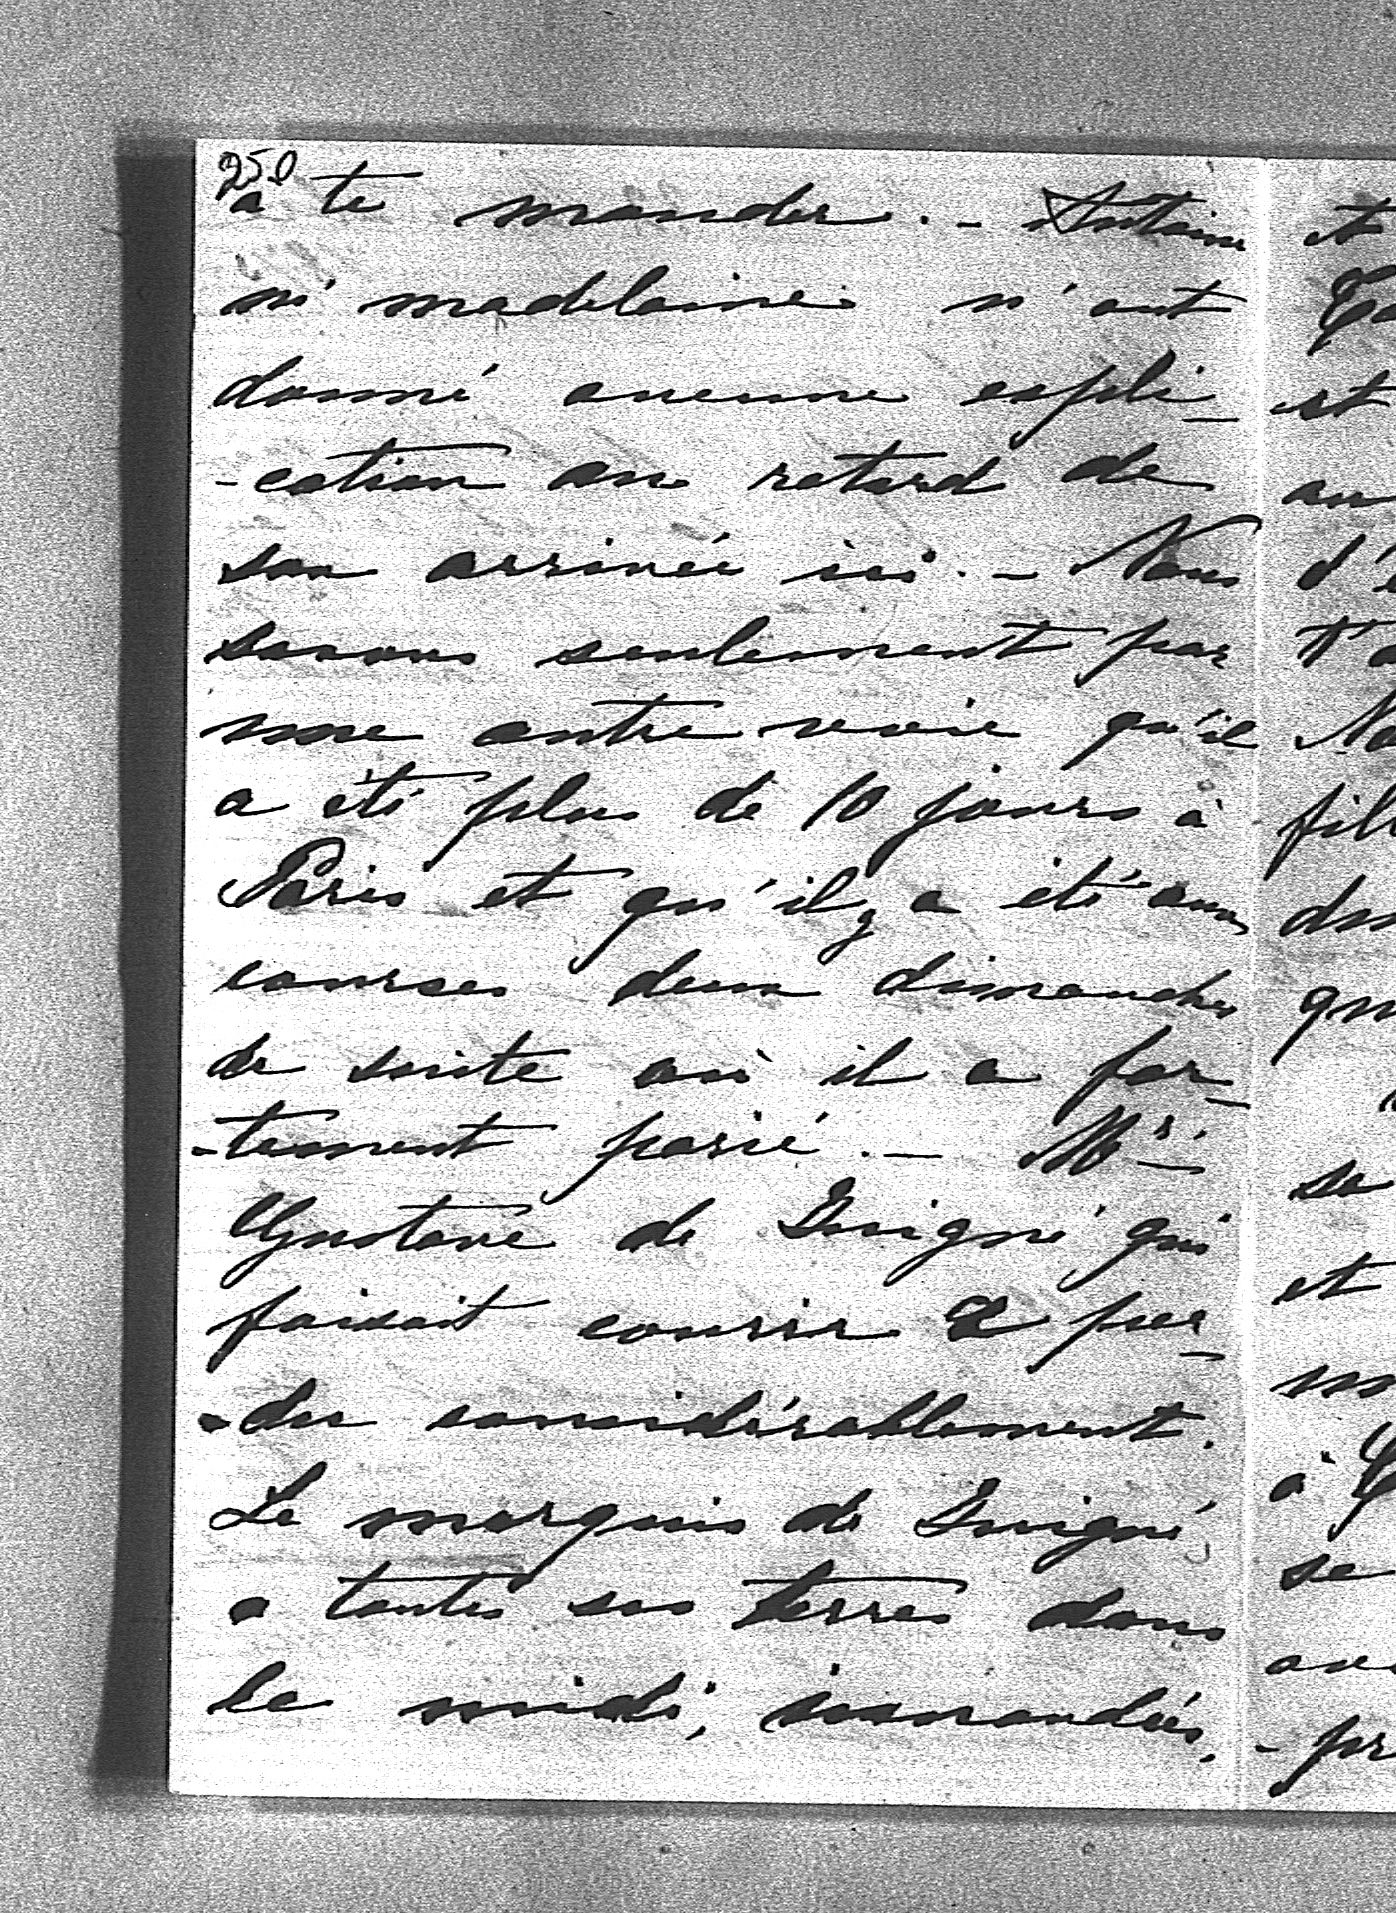 250
à te mander. - Antoine
ni madelaine n'ont
donné aucune expli-
-cation au retard de
son arrivée ici. - Nous
savons seulement par
une autre voie qu'il
a été plus de 10 jours à
Paris et qu'il y a été aux
courses deux dimanches
de suite où il a for-
-tement parié. - Mr
Gustave de Juigné qui
faisait courir a per-
-du considérablement.
Le marquis de Juigné
a toutes ses terres dans
le midi, inondées,